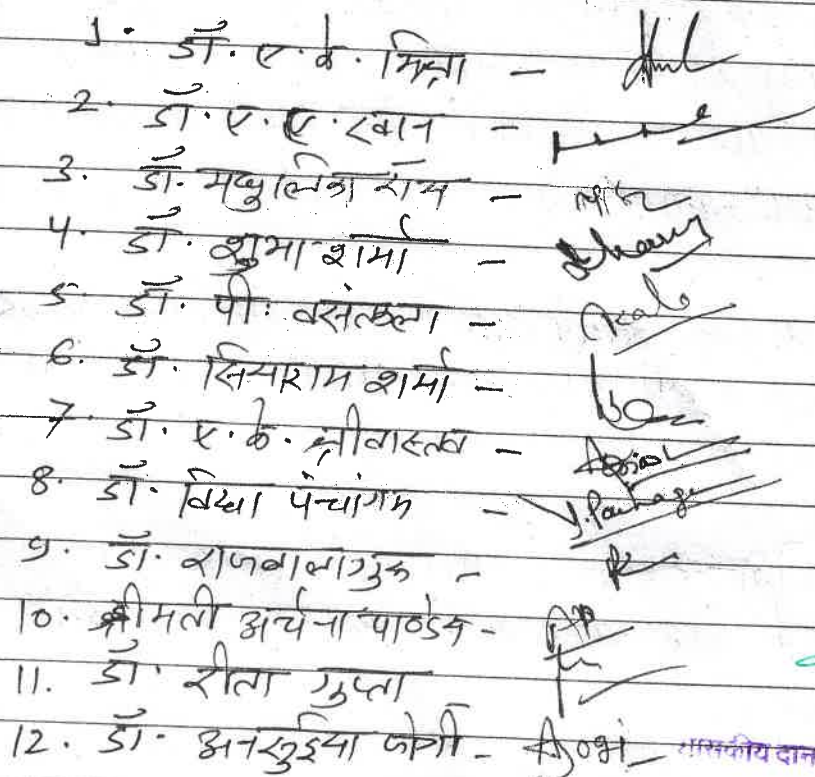 1. डॉ. ए. के. मिश्रा -
2. डॉ. ए. ए. खान -
3. डॉ. मधुलिका रॉय -
4. डॉ. शुभा शर्मा -
5 डॉ. पी. वसंतकला -
6. डॉ. सियाराम शर्मा -
7. डॉ. ए. के. श्रीवास्तव -
8. डॉ. विद्या पंचांगम - V. Panchagam
9. डॉ. राजबाला गुरू -
10. श्रीमती अर्चना पाण्डेय -
11. डॉ. रीता गुप्ता
12. डॉ. अनसुईया जोगी - AJogi शासकीय दान